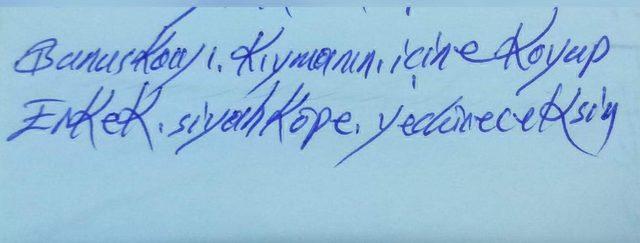 Bunu Koyı. Kıymanın. içine Koyup
Erkek. siyah Köpe. yedireceksin